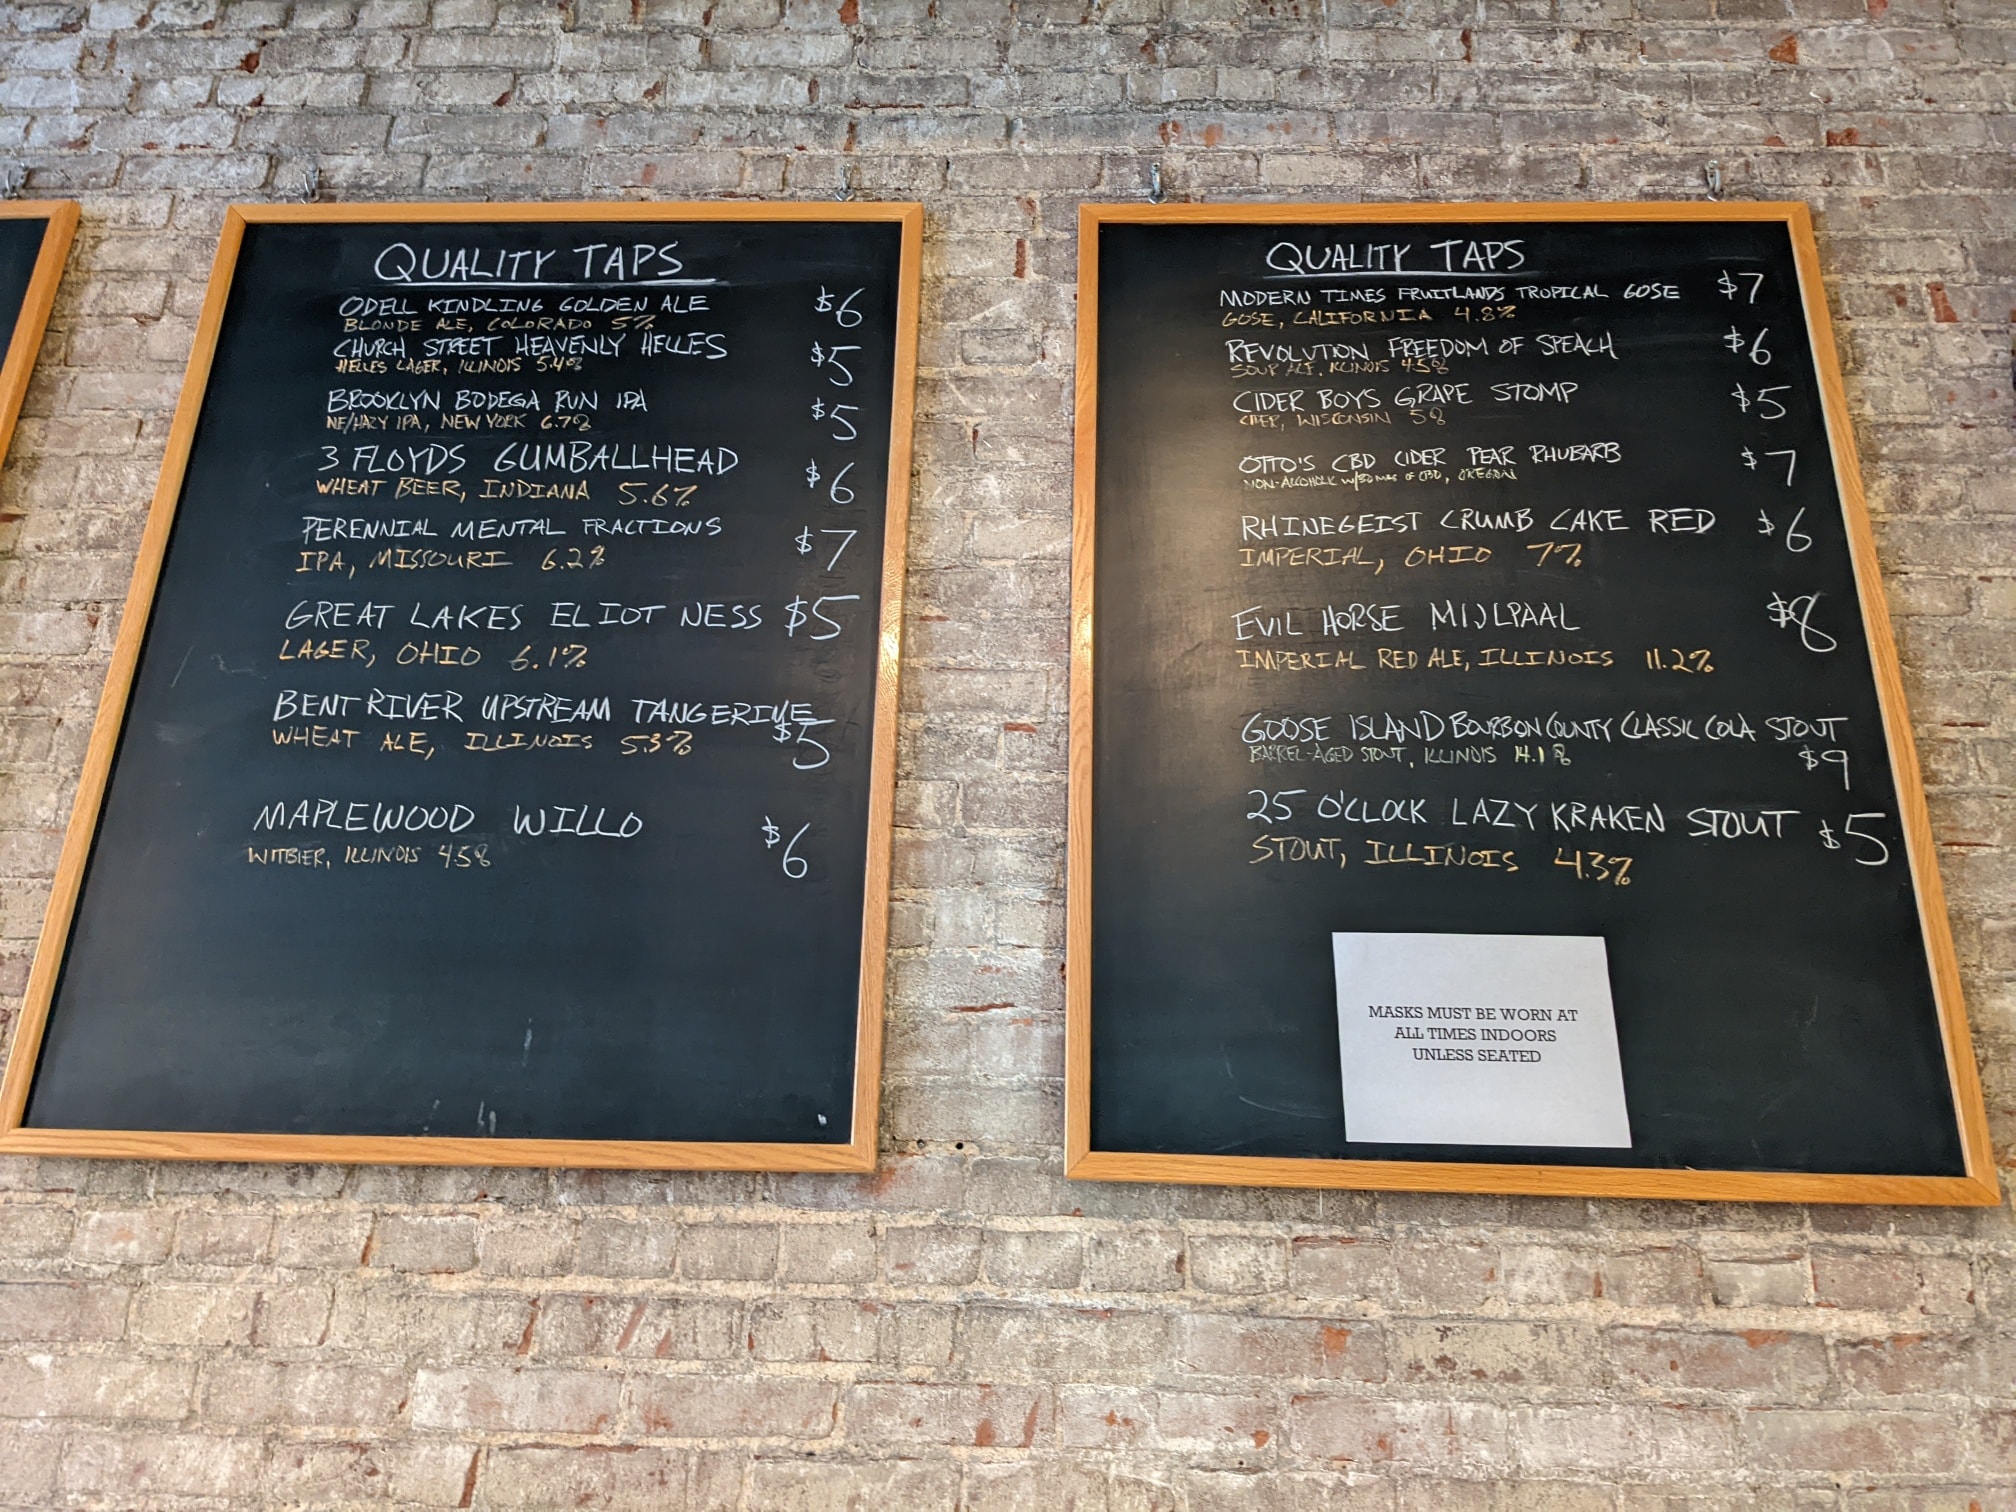 QUALITY TAPS
ODELL KINDLING GOLDEN ALE $6
BLONDE ALE, COLORADO 5%
CHURCH STREET HEAVENLY HELLES $5
HELLES LAGER, ILLINOIS 5.4%
BROOKLYN BODEGA RUN IPA $5
NE/HAZY IPA, NEW YORK 6.7%
3 FLOYDS GUMBALLHEAD $6
WHEAT BEER, INDIANA 5.6%
PERENNIAL MENTAL FRACTIONS $7
IPA, MISSOURI 6.2%
GREAT LAKES ELIOT NESS $5
LAGER, OHIO 6.1%
BENT RIVER UPSTREAM TANGERINE
WHEAT ALE, ILLINOIS 5.3% $5
MAPLEWOOD WILLO $6
WITBIER, ILLINOIS 4.5%
QUALITY TAPS
MODERN TIMES FRUITLANDS TROPICAL GOSE $7
GOSE, CALIFORNIA 4.8%
REVOLUTION FREEDOM OF SPEACH $6
SOUR ALE, ILLINOIS 4.5%
CIDER BOYS GRAPE STOMP $5
CIDER, WISCONSIN 5%
OTTO'S CBD CIDER PEAR RHUBARB $7
NON-ALCOHOLIC W/30 MG OF CBD, OREGON
RHINEGEIST CRUMB CAKE RED $6
IMPERIAL, OHIO 7%
EVIL HORSE MIJLPAAL $8
IMPERIAL RED ALE, ILLINOIS 11.2%
GOOSE ISLAND BOURBON COUNTY CLASSIC COLA STOUT
BARREL-AGED STOUT, ILLINOIS 14.1% $9
25 O'CLOCK LAZY KRAKEN STOUT $5
STOUT, ILLINOIS 4.3%
MASKS MUST BE WORN AT
ALL TIMES INDOORS
UNLESS SEATED